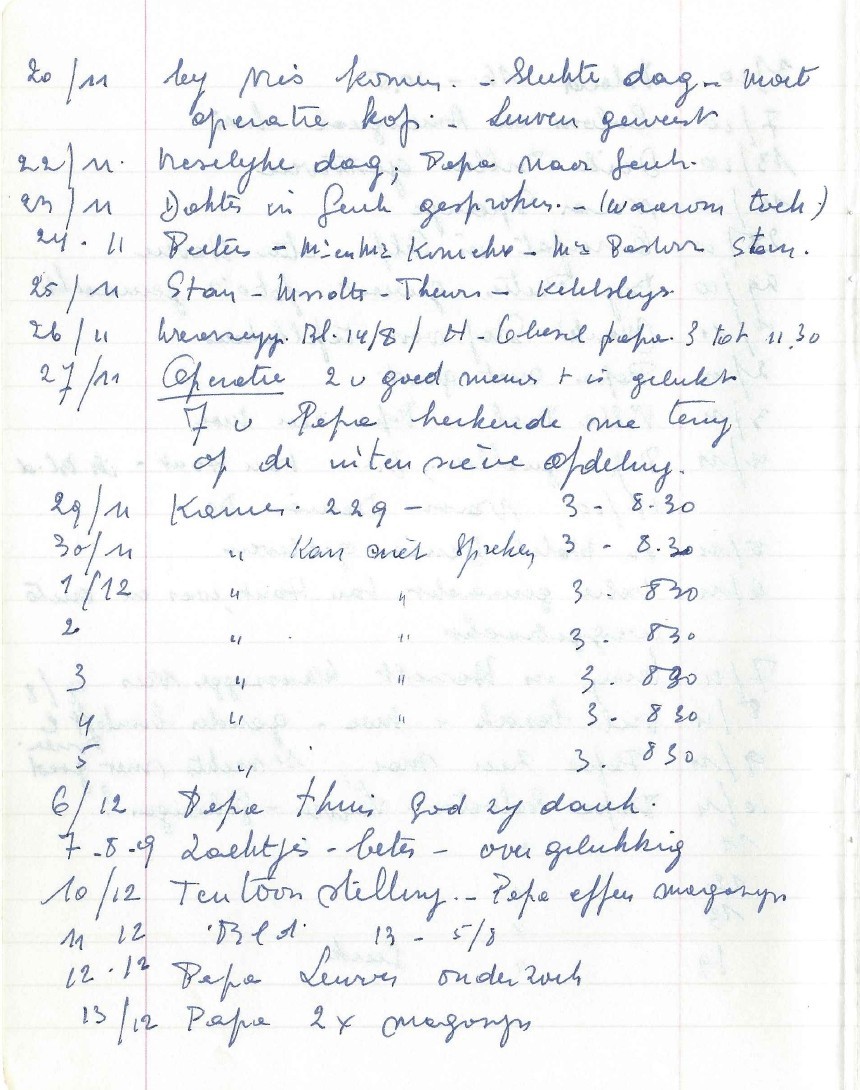 20/11 by Nis komen. - Slechte dag - moet
operatie kop. - Leuven geweest
22/11. Vreselyke dag; Papa naar Genk.
23/11 Dokter in Genk gesproken. - (waarom toch)
24.11 Peeters - Mr en Mr - Mr Pastoor Stan.
25/11 Stan - - Theurs -
26/11 14/8 / H - papa 3 tot 11,30
27/11 Operatie 2 u goed nieuws + is gelukt
7 u Papa herkende me terug
op de intensieve afdeling.
29/11 Kamer. 229 - 3 - 8.30
30/11 " Kan niet spreken 3 - 8.30
1/12 " " 3. 830
2 " " 3. 830
3 " " 3. 830
4 " " 3. 830
5 " 3. 830
6/12 Papa thuis God zy dank.
7-8-9 Zachtjes - beter - over gelukkig
10/12 Tentoonstelling. - Papa effen
11 12 Bld. 13 - 5/8
12.12 Papa Leuven onderzoek
13/12 Papa 2x